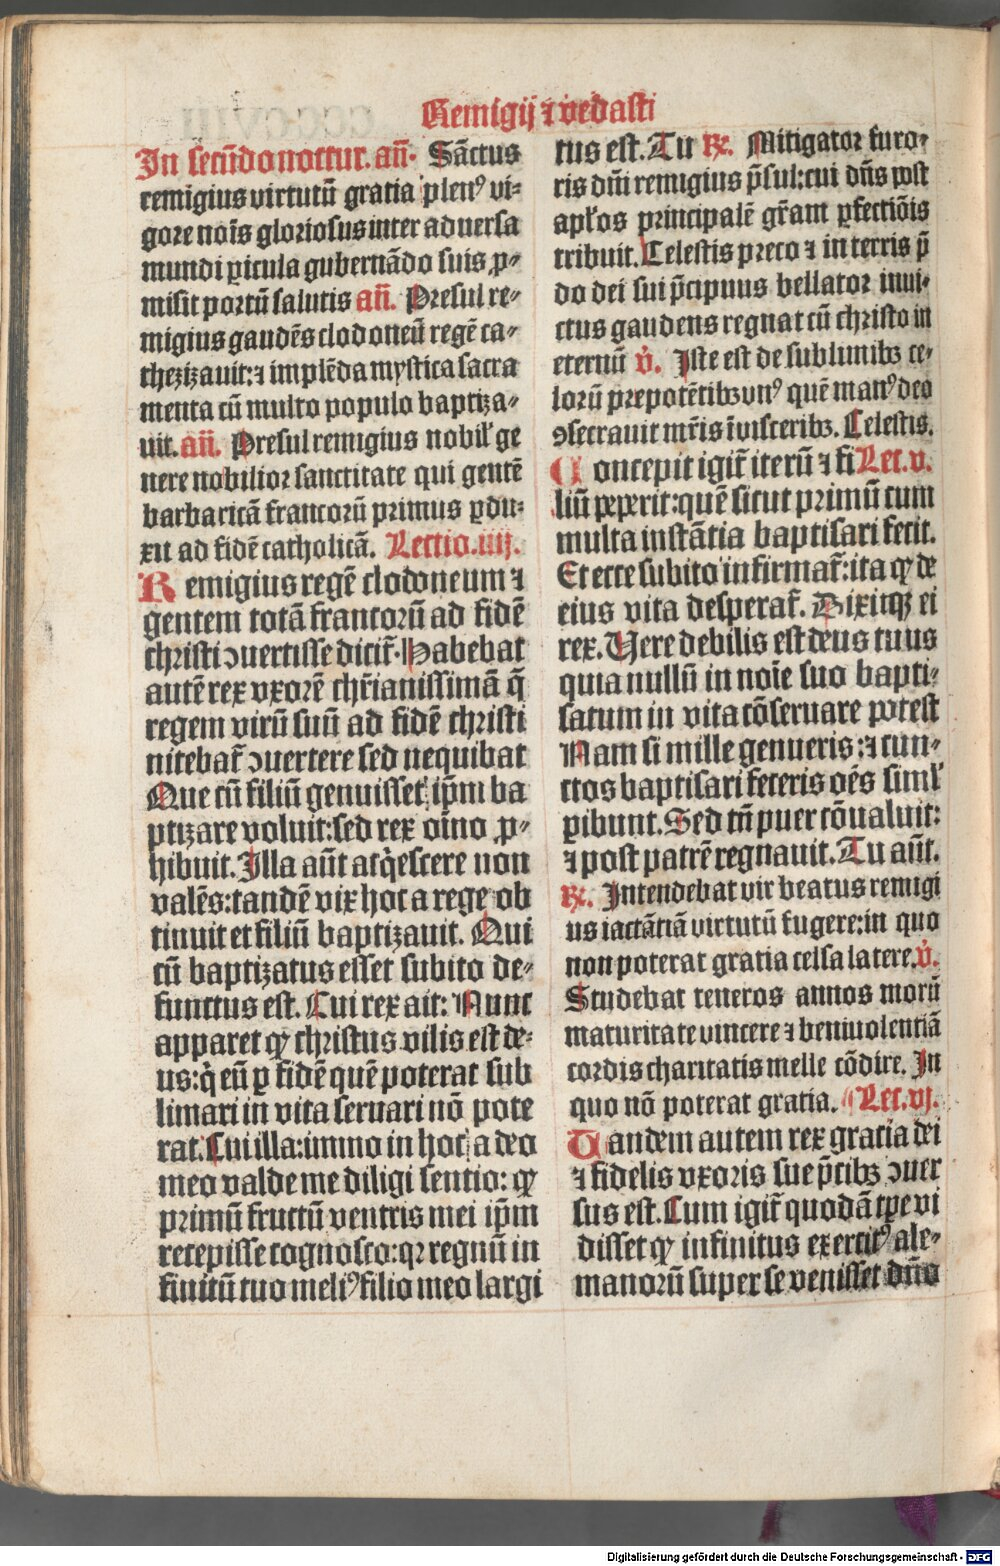 Remigij ⁊ vedasti
In secūdo noctur. añ. Sāctus
remigius virtutū gratia plenꝰ vi-
gore noīs gloriosus inter aduersa
mundi ꝑicula gubernādo suis ꝓ-
misit portū salutis añ. Presul re-
migius gaudēs clodoneū regē ca-
thezizauit:⁊ implēda mystica sacra
menta cū multo populo baptiza-
uit. añ. Presul remigius nobiľ ge
nere nobilior sanctitate qui gentē
barbaricā francorū primus ꝑdu-
xit ad fidē catholicā. Lectio.iiij.
Remigius regē clodoneum ⁊
gentem totā francorū ad fidē
christi ↄuertisse dicit̄. Habebat
autē rex vxorē chr̄ianissimā q̄
regem virū suū ad fidē christi
nitebat̄ ↄuertere sed nequibat
Que cū filiū genuisset ip̄m ba
ptizare voluit:sed rex oīno ꝓ-
hibuit. Illa aūt acq̇escere non
valēs:tandē vix hoc a rege ob
tinuit et filiū baptizauit. Qui
cū baptizatus esset subito de-
functus est. Cui rex ait: Nunc
apparet ꝙ christus vilis est de-
us:q̇ eū ꝑ fidē quē poterat sub
limari in vita seruari nō pote
rat. Cui illa:immo in hoc a deo
meo valde me diligi sentio: ꝙ
primū fructū ventris mei ip̄m
recepisse cognosco:qꝛ regnū in
finitū tuo meliꝰ filio meo largi
tus est. Tu ℞. Mitigator furo-
ris dn̄i remigius p̄sul:cui dn̄s post
apľos principalē gr̄am ꝑfectiōis
tribuit. Celestis preco ⁊ in terris p̄
do dei sui p̄cipuus bellator inui-
ctus gaudens regnat cū christo in
eternū v̇. Iste est de sublimibꝫ ce-
lorū prepotētibꝫ vnꝰ quē manꝰ deo
ꝯsecrauit mr̄is ī visceribꝫ. Celestis.
Concepit igit̄ iterū ⁊ fi Lec.v.
liū peperit:quē sicut primū cum
multa instātia baptisari fecit.
Et ecce subito infirmat̄:ita ꝙ de
eius vita desperat̄. Dixitqꝫ ei
rex. Vere debilis est deus tuus
quia nullū in noīe suo bapti-
satum in vita cōseruare potest
Nam si mille genueris:⁊ cun-
ctos baptisari feceris oēs simľ
ꝑibunt. Sed tn̄ puer cōualuit:
⁊ post patrē regnauit. Tu aūt.
℞. Intendebat vir beatus remigi
us iactātiā virtutū fugere:in quo
non poterat gratia celsa latere. v̇.
Studebat teneros annos morū
maturitate vincere ⁊ beniuolentiā
cordis charitatis melle cōdire. In
quo nō poterat gratia. Lec.vj.
Tandem autem rex gratia dei
⁊ fidelis vxoris sue p̄cibꝫ ↄuer
sus est. Cum igit̄ quodā tꝑe vi
disset ꝙ infinitus exercitꝰ ale-
manorū super se venisset dn̄o
Digitalisierung gefördert durch die Deutsche Forschungsgemeinschaft - DFG